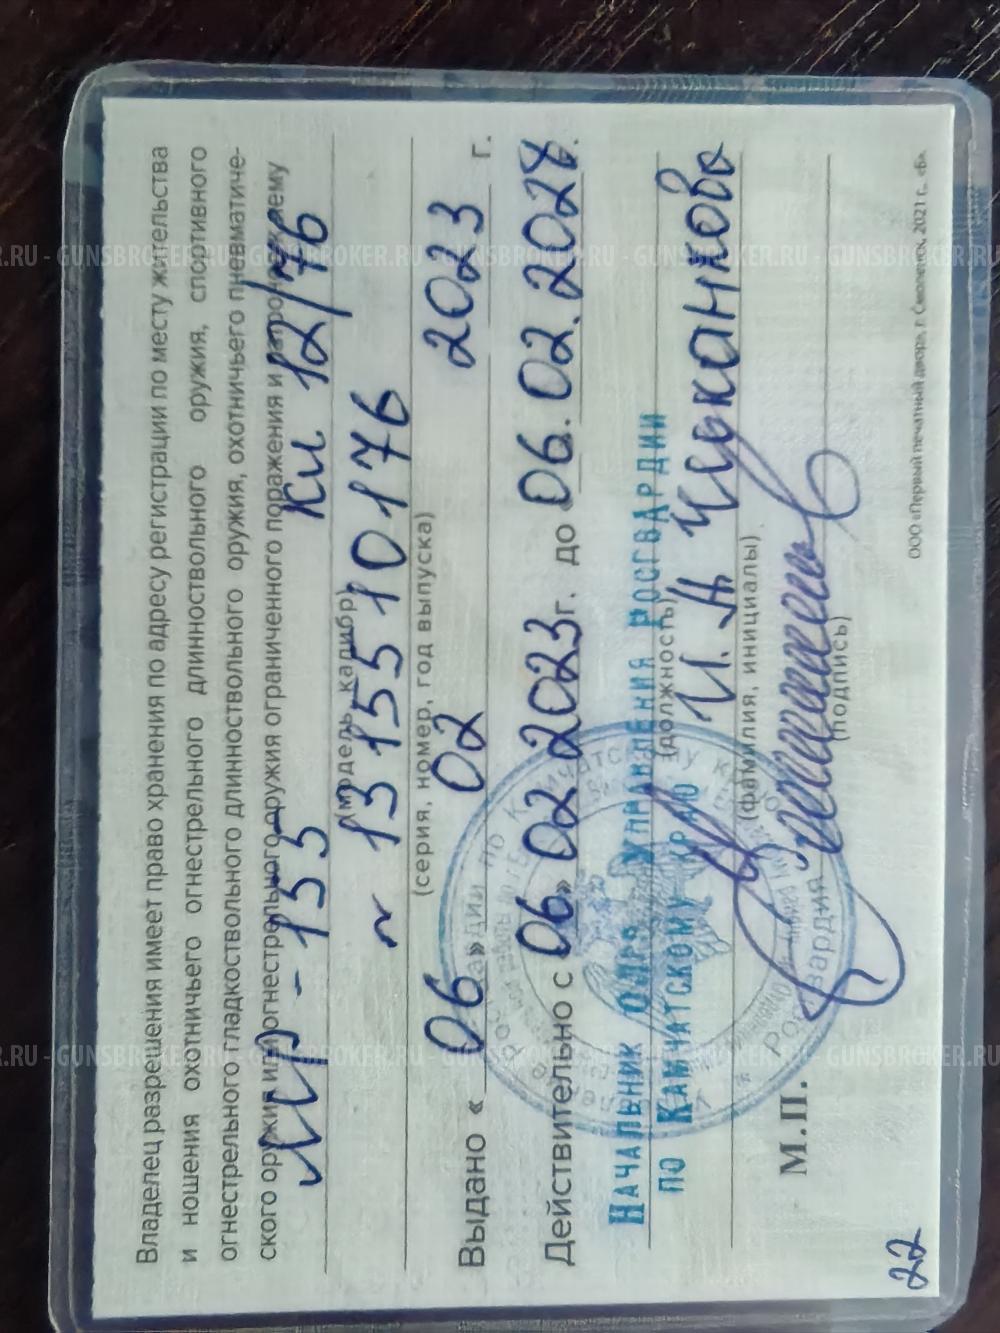 Владелец разрешения имеет право хранения по адресу регистрации по месту жительства
и ношения охотничьего огнестрельного длинноствольного оружия, спортивного
огнестрельного гладкоствольного длинноствольного оружия, охотничьего пневматиче-
ского оружия или огнестрельного оружия ограниченного поражения и патронов к нему
МР-155 кл 12/76
(модель, калибр)
~ 1315510176
(серия, номер, год выпуска)
Выдано « 06 » 02 2023 г.
Действительно с 06.02.2023г. до 06.02.2028.
Начальник ОЛРР Управления Росгвардии
по Камчатскому краю
(должность)
И.А Чуканова
(фамилия, инициалы)
М.П.
(подпись)
ООО «Первый печатный двор», г. Смоленск, 2021 г., «Б».
22
GUNSBROKER.RU - GUNSBROKER.RU - GUNSBROKER.RU
GUNSBROKER.RU - GUNSBROKER.RU - GUNSBROKER.RU